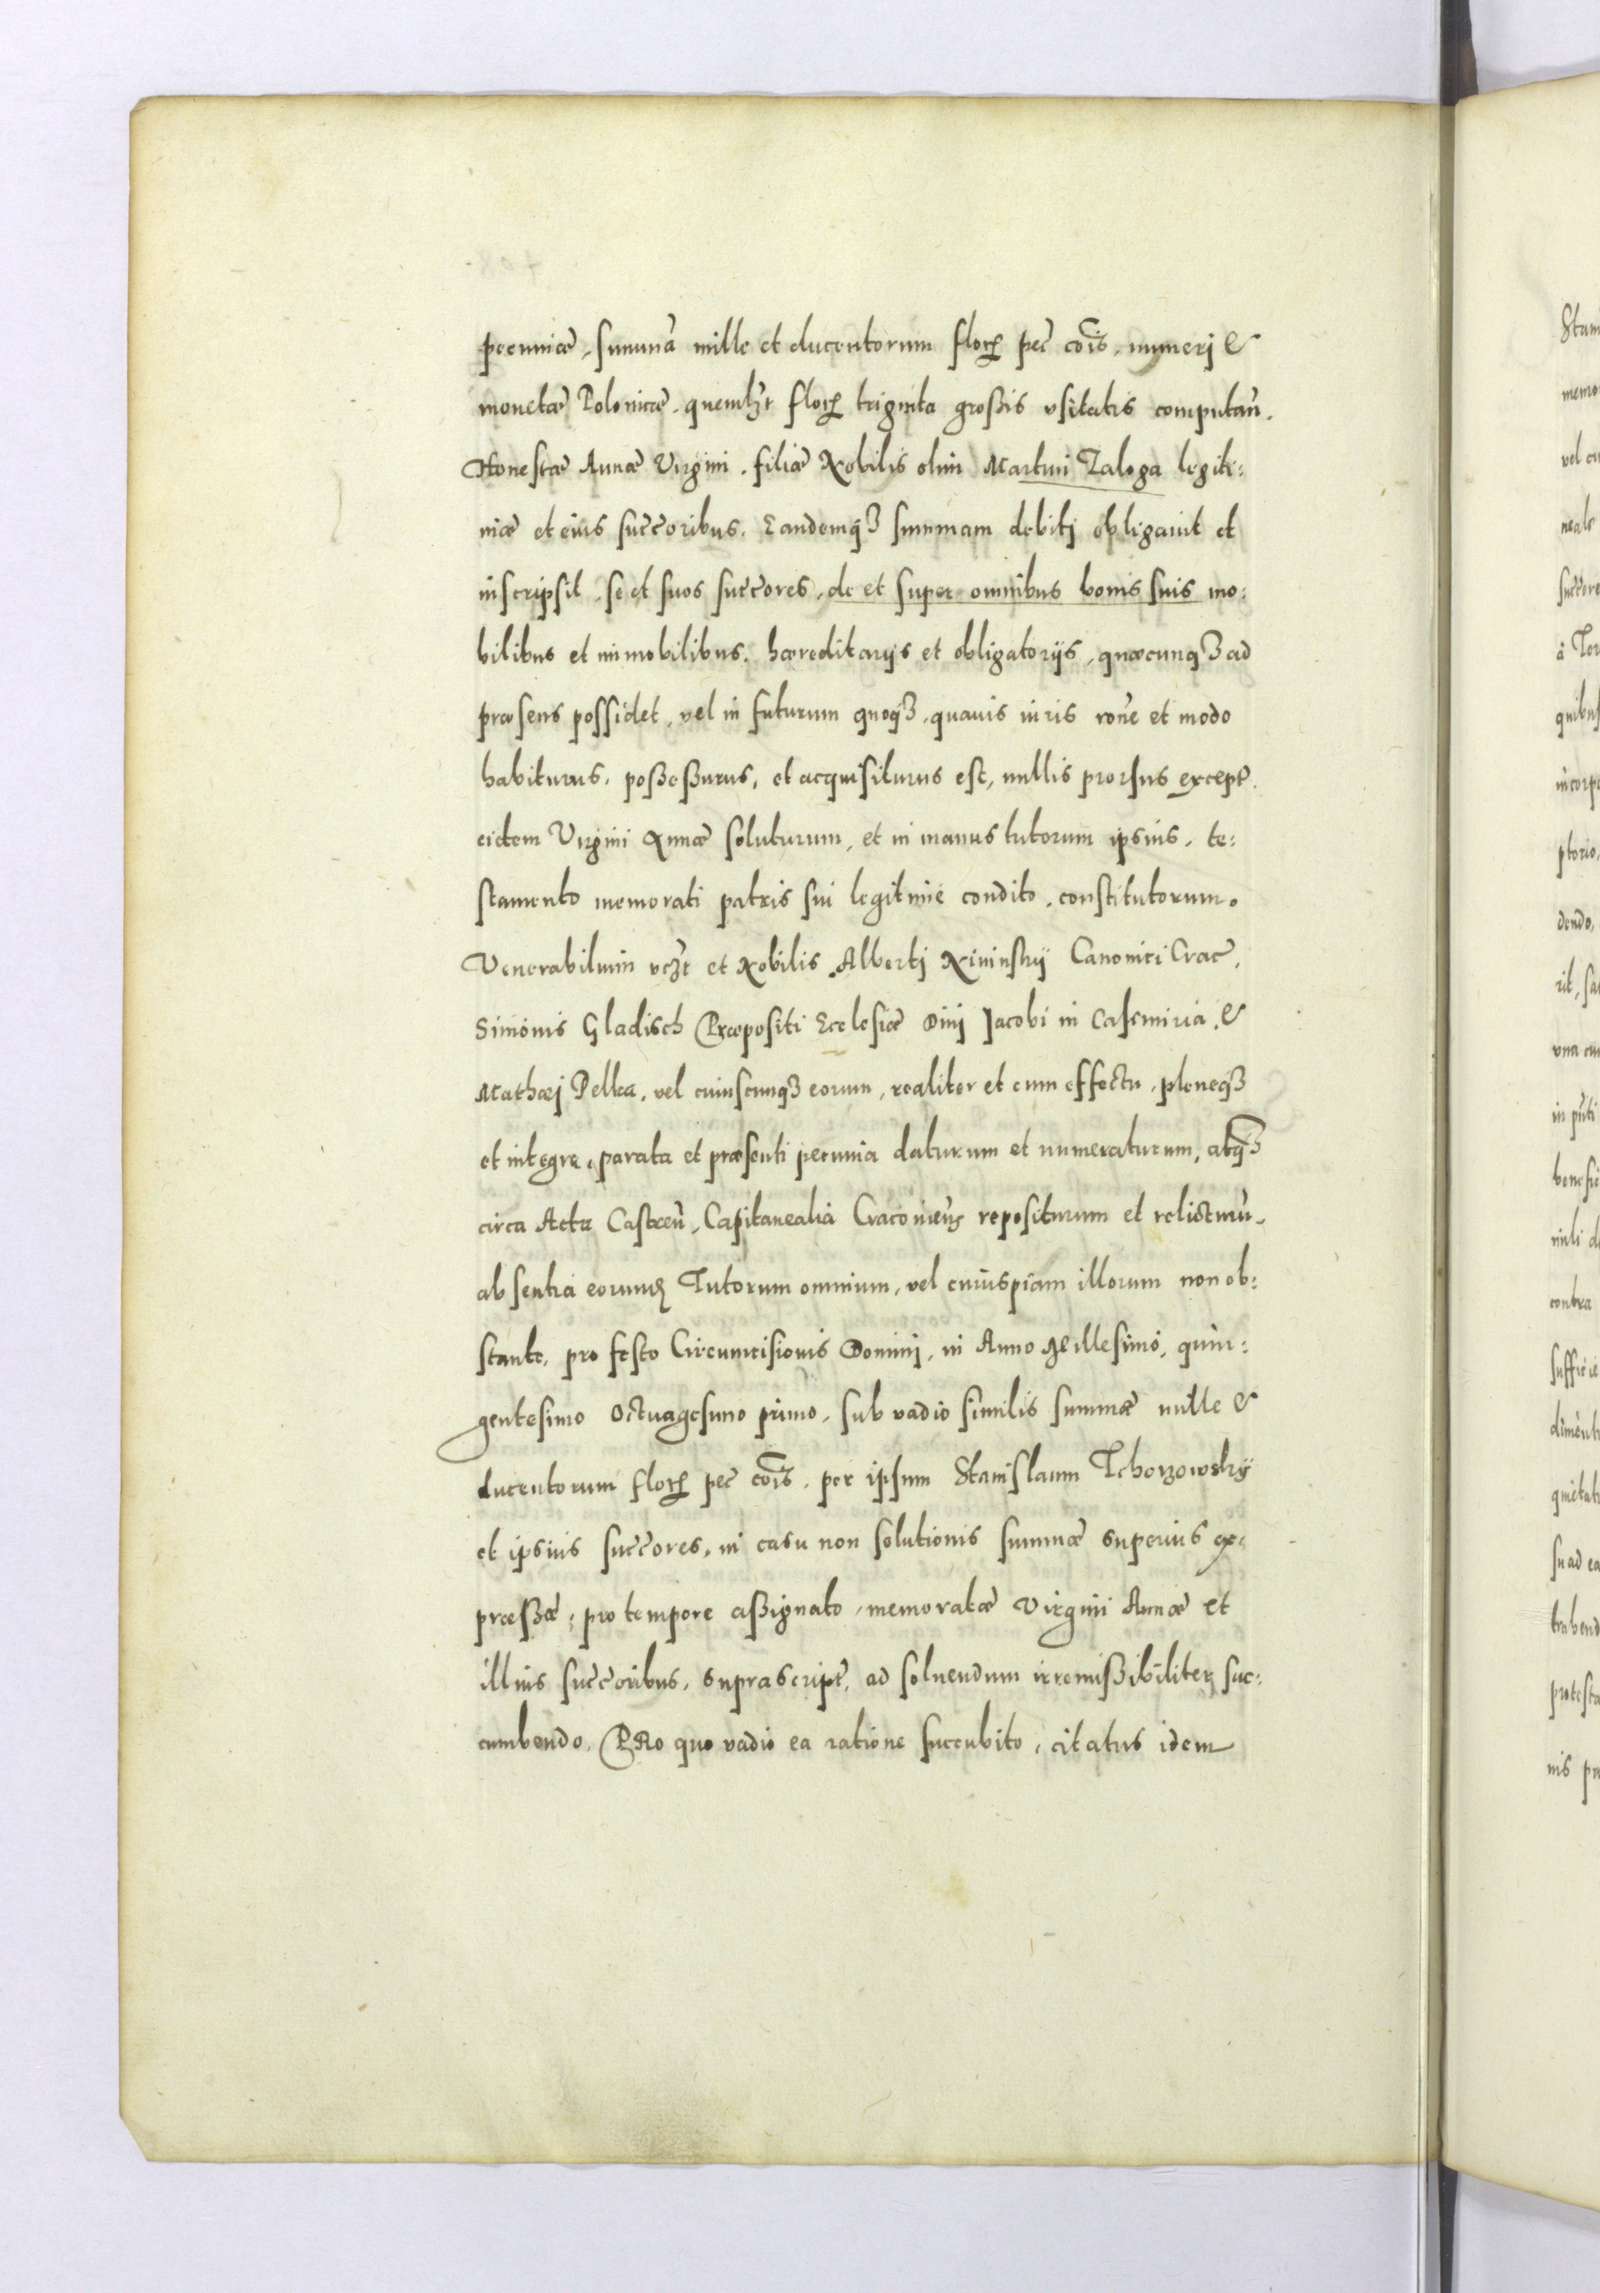 pecuniæ, sum̃mã mille et ducentorum floꝝ peĉ cõis, numerj &
monetæ Polonicæ, quemlꝫt floꝝ triginta großis vsitatis computañ.
Honestæ Annæ Virgini, filiæ Nobilis olim Martini Taloga legiti:
mæ et eius succ̃oribus. Eandemqꝫ summam debitj obligauit et
inscripsit, se et suos succ̃ores, de et super omnibus bonis suis mo:
bilibus et immobilibus, hæreditarijs et obligatorijs, quæcunqꝫ ad
præsens possidet, vel in futurum quoqꝫ, quauis iuris rõne et modo
habiturus, poßeßurus, et acquisiturus est, nullis prorsus except̃.
eidem Virgini Annæ soluturum, et in manus tutorum ipsius, te:
stamento memorati patris sui legitimè condito, constitutorum.
Venerabilium vcꝫt et Nobilis Albertj Kininskij Canonici Crac̃,
Simonis Gladisch Præpositi Ecclesiæ Diuj Jacobi in Casemiria, &
Mathæj Pelka, vel cuiuscunqꝫ eorum, realiter et cum effectu, pleneqꝫ
et integre, parata et præsenti pecunia daturum et numeraturum, atqꝫ
circa Acta Castreñ, Capitanealia Cracouieñs repositurum et relicturũ,
absentia eorundꝫ Tutorum omnium, vel cuiuspiam illorum non ob:
stante, pro festo Circumcisionis Dominj, in Anno Millesimo, quin:
gentesimo Octuagesimo primo, sub vadio similis summæ mille &
ducentorum floꝝ peĉ cõis, per ipsum Stanislaum Tchorzowskij
et ipsius succ̃ores, in casu non solutionis summæ superius ex:
præßæ, pro tempore aßignato, memoratæ Virgini Annæ et
illius succ̃oribus, suprascript̃, ad soluendum irremißibiliter suc:
cumbendo, PRo quo vadio ea ratione succubito, citatus idem